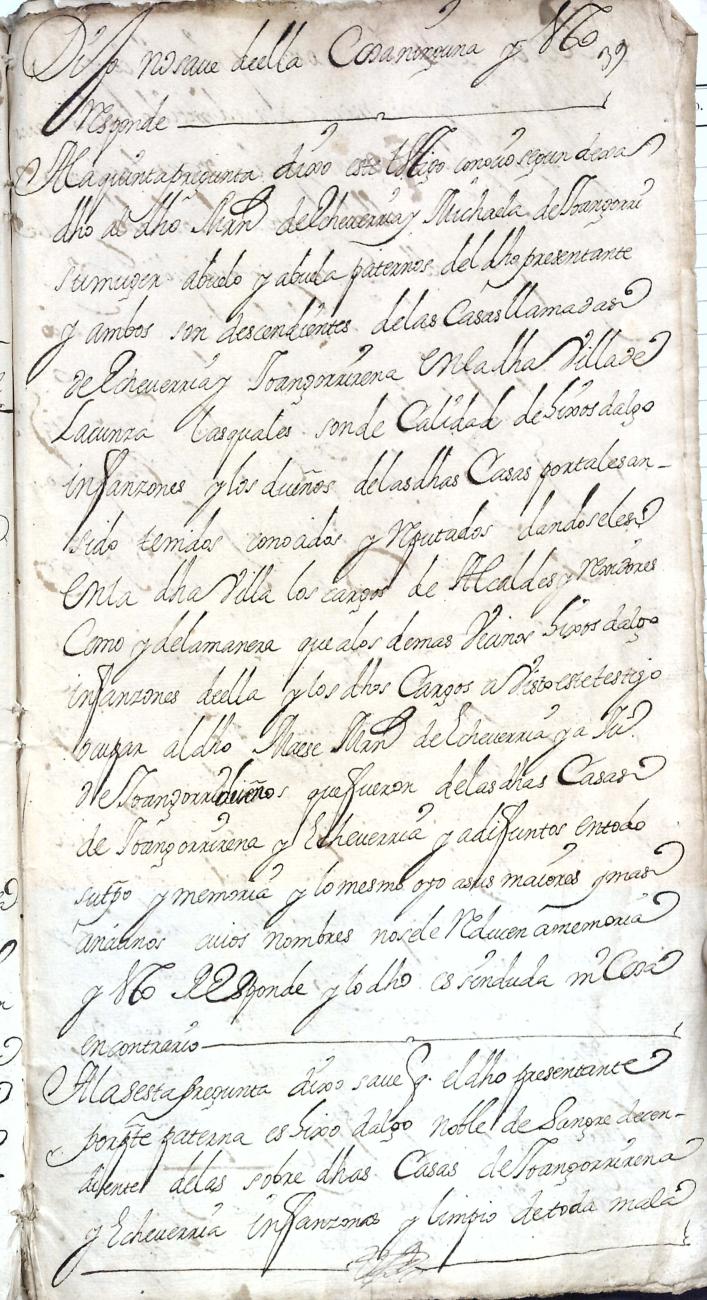 Dixo no save de ella Cosa ninguna y esto
39
Responde
A la quinta pregunta dixo este testigo conocio segun dexa
dho al dho Mrn de Echeverria y Michaela de Joangorri
su muger abuelo y abuela paternos del dho presentante
y ambos son descendientes de las Casas llamadas
de Echeverria y Joangorrirena en la dha Villa de
Lacunza las quales son de Calidad de hixosdalgo
infanzones y los dueños de las dhas Casas por tales an
sido tenidos conocidos y Reputados dandoseles
en la dha Villa los cargos de Alcaldes y Regidores
Como y de la manera que a los demas Vecinos hixosdalgo
infanzones de ella y los dhos Cargos a visto este testigo
ocupar al dho Maese Mrn de Echeverria y a Ju.
de Joangorri dueños que fueron de las dhas Casas
de Joangorrirena y Echeverria y a difuntos en todo
su tpo y memoria y lo mesmo oyo a sus maiores y mas
ancianos cuios nombres no se le Reducen a memoria
y esto Responde y lo dho es sin duda ni Cosa
en contrario
A la sesta pregunta dixo save q. el dho presentante
por pte paterna es hixo dalgo noble de Sangre decen-
diente de las sobre dhas Casas de Joangorrirena
y Echeverria infanzonas y limpio de toda mala